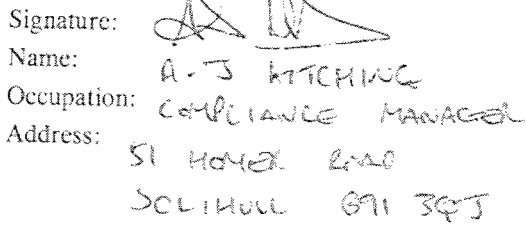 Signature:
Name: A. J HITCHING
Occupation: COMPLIANCE MANAGER
Address:
51 HOMER ROAD
SOLIHULL B91 3QJ